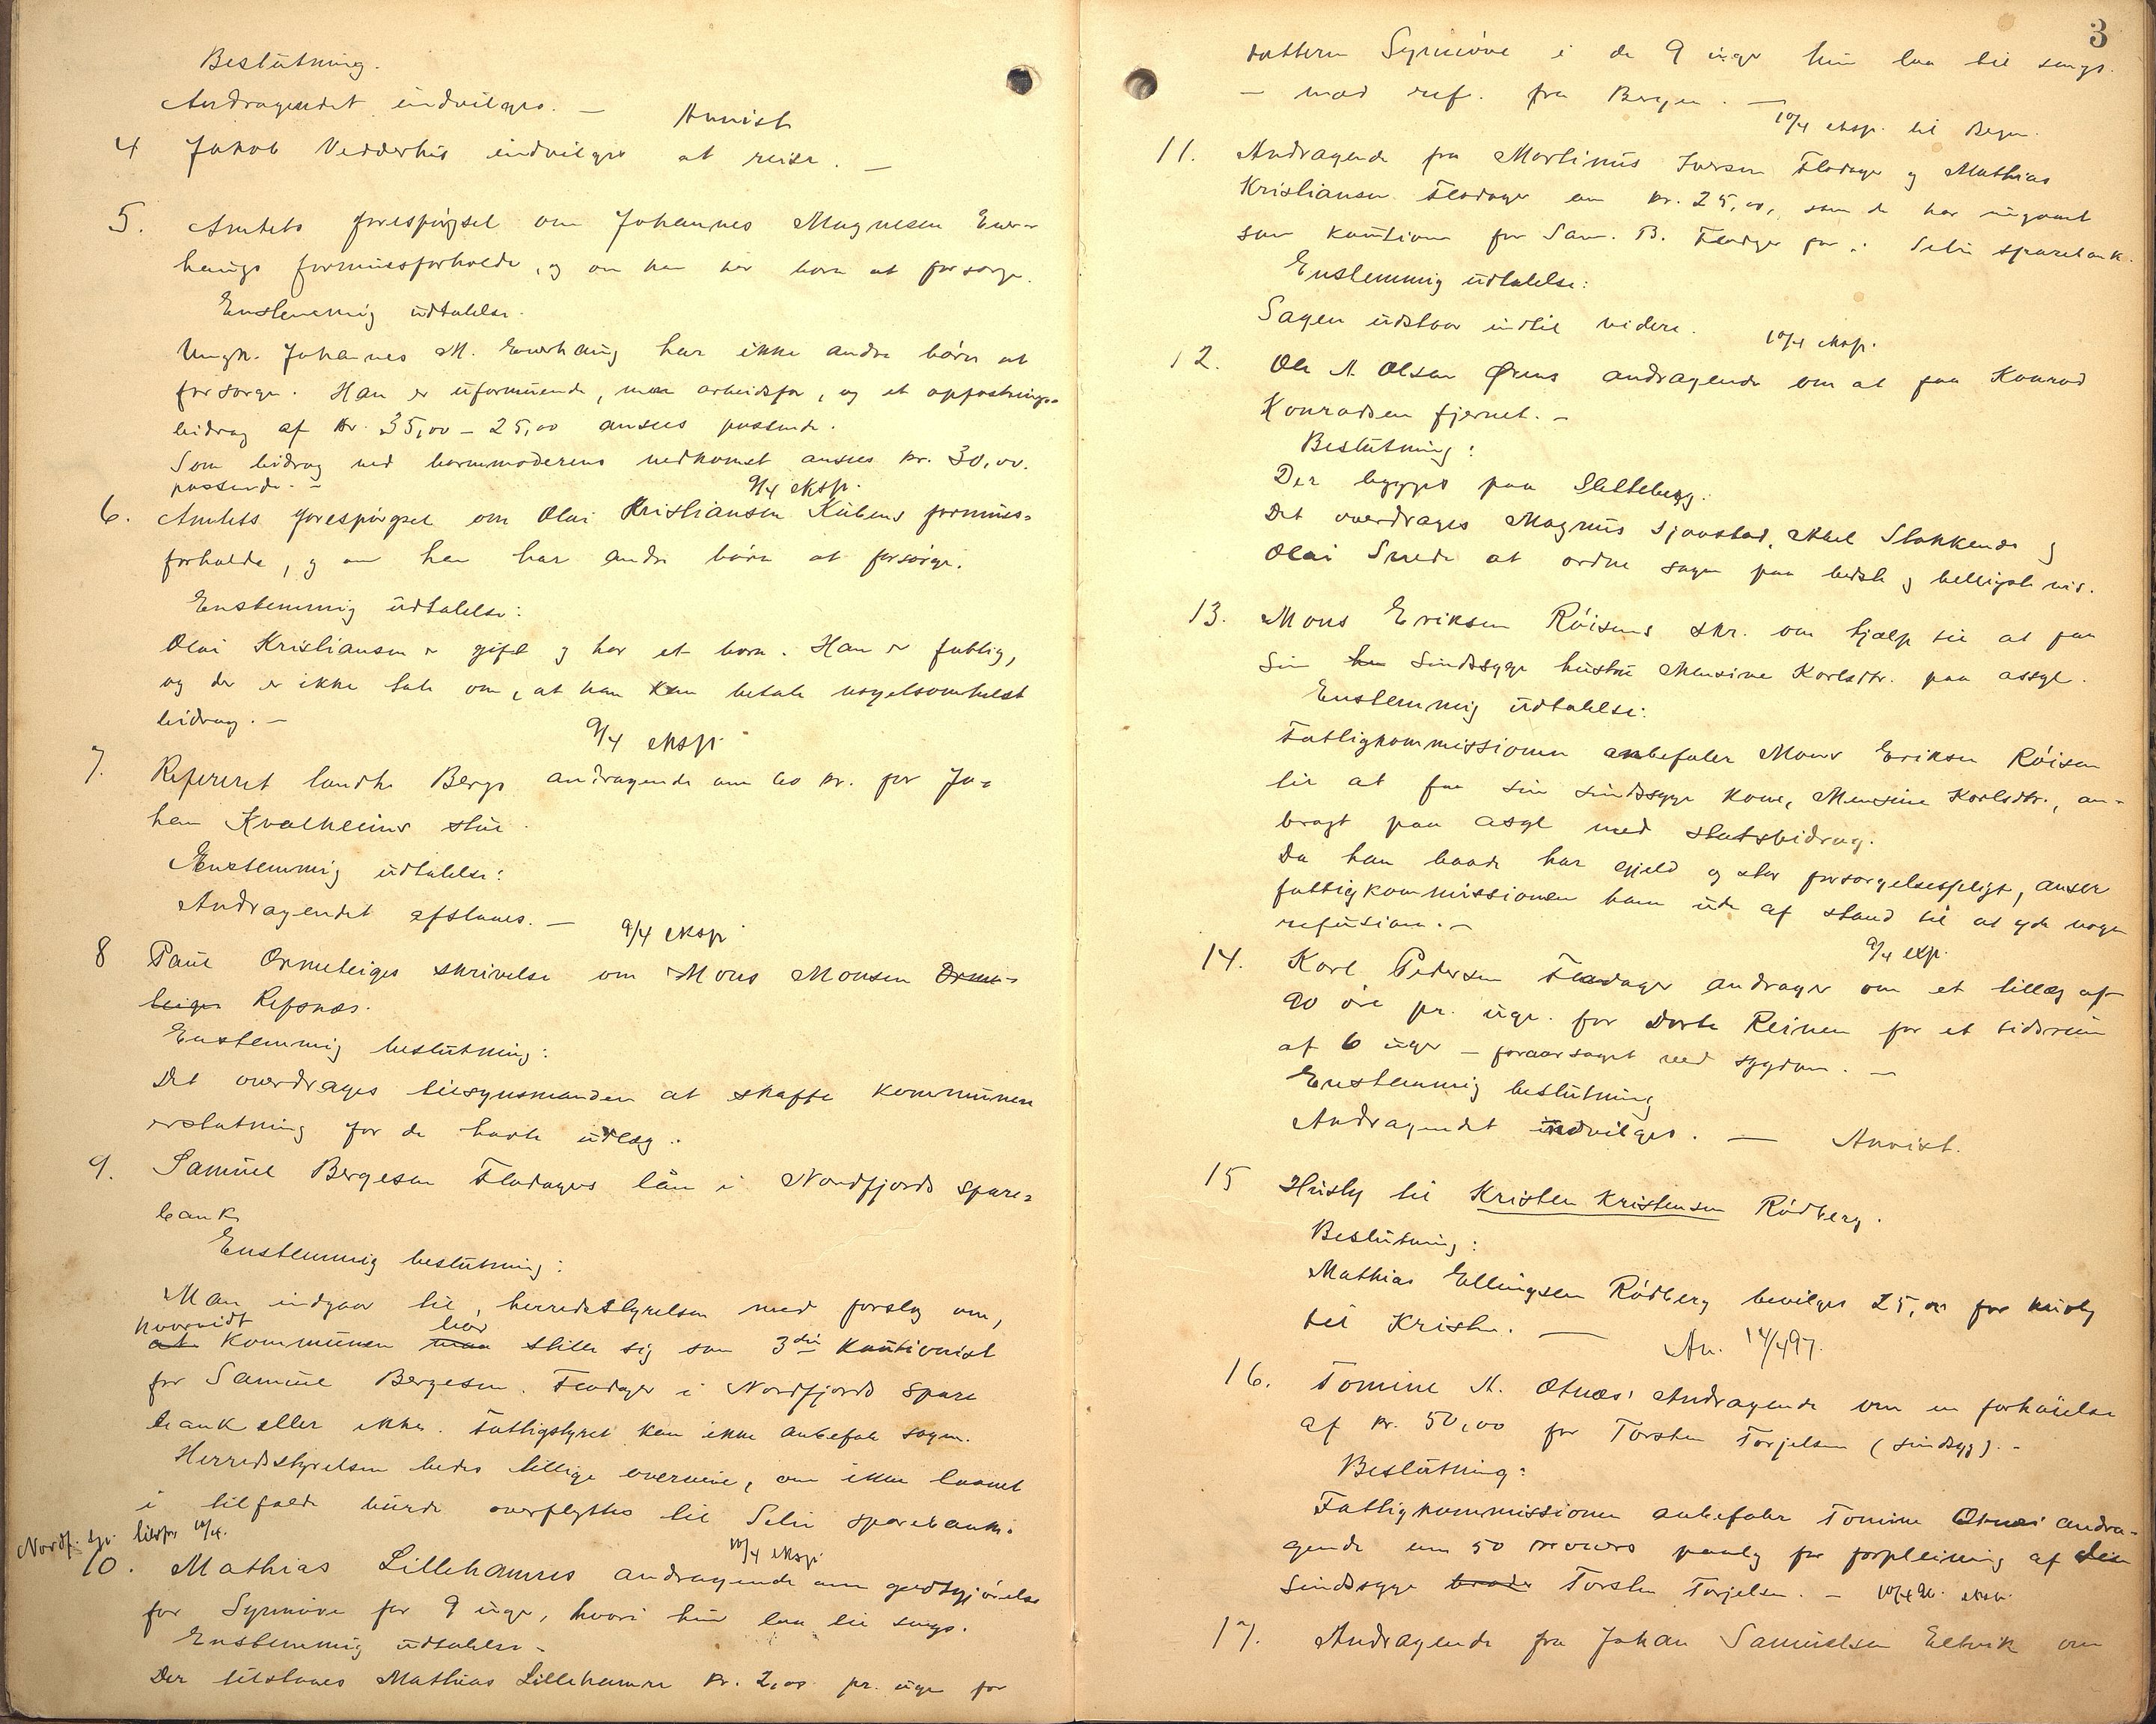 Beslutning.
Andragendet indvilges. —
Anvist
4 Jakob Vedderhus indvilges at reise. —
5. Amtets forespørgsel om Johannes Magnesen Ener-
haugs formuesforholde, og om han har børn at forsørge.
Enstemmig udtalelse.
Ungk. Johannes M. Enerhaug har ikke andre børn at
forsørge. Han er uformuende, men arbeidsfør, og et opfostrings-
bidrag af kr. 35,00 – 25,00 ansees passende.
Som bidrag ved barnemoderens nedkomst ansees kr. 30,00.
passende. –
9/4 eksp.
6. Amtets forespørgsel om Olai Kristiansen Kubens formues-
forholde, og om han har andre børn at forsørge.
Enstemmig udtalelse:
Olai Kristiansen er gift og har et barn. Han er fattig,
og der er ikke tale om, at han kan betale nogetsomhelst
bidrag. —
9/4 eksp.
7. Refereret landh. Bergs andragende om 60 kr. for Jo-
han Kvalheims stue.
Enstemmig udtalelse:
Andragendet afslaaes. —
9/4 eksp
8 Paul Ormeteiges skrivelse om Mons Monsen Orme-
teigen Refsnæs.
Enstemmig beslutning:
Det overdrages tilsynsmanden at skaffe kommunen
erstatning for de havte udlæg.
9. Samuel Bergesen Fladagers lån i Nordfjords spare-
bank
Enstemmig beslutning:
Man indgaar til herredsstyrelsen med forslag om,
hvorvidt bør
at kommunen maa stille sig som 3die kautionist
for Samuel Bergesen Fladager i Nordfjords spare
bank eller ikke. Fattigstyret kan ikke anbefale sagen.
Herredsstyrelsen bedes tillige overveie, om ikke laanet
i tilfælde burde overflyttes til Selje sparebank.
Nordf. spb. tilskr 10/4.
10/4 eksp.
10. Mathias Lillehamres andragende om godtgjørelse
for Synnøve for 9 uger, hvori hun laa til sengs.
Enstemmig udtalelse –
Der tilstaaes Mathias Lillehamre kr. 2,00 pr. uge for
3
datteren Synnøve i de 9 uger hun laa til sengs.
— mod ref. fra Bergen. —
10/4 eksp. til Bergen.
11. Andragende fra Martinus Iversen Fladager og Mathias
Kristiansen Fladager om kr. 25,00, som de har udgivet
som kaution for Sam. B. Fladager for i Selje sparebank.
Enstemmig udtalelse:
Sagen udstaar indtil videre.
10/4 eksp.
12. Ole A. Olsen Ørens andragende om at faa Konrad
Konradsen fjernet. –
Beslutning:
Der bygges paa Sletteberg.
Det overdrages Magnus Sjaastad, Abel Stokkenes og
Olai Smede at ordne sagen paa bedste og billigste vis.
13. Mons Eriksen Røisens skr. om hjælp til at faa
sin hu sindssyge hustru Mensine Karlsdtr. paa asyl.
Enstemmig udtalelse:
Fattigkommissionen anbefaler Mons Eriksen Røisen
til at faa sin sindssyge kone, Mensine Karlsdtr., an-
bragt paa asyl med statsbidrag.
Da han baade har gjeld og stor forsørgelsespligt, anser
fattigkommissionen ham ude af stand til at yde nogen
refusion. –
9/4 exp.
14. Karl Pedersen Fladager andrager om et tillæg af
90 øre pr. uge. for Dorte Reinen for et tidsrum
af 6 uger – foraarsaget ved sygdom. —
Enstemmig beslutning
Andragendet indvilges. —
Anvist.
15 Husly til Kristen Kristensen Rødberg.
Beslutning:
Mathias Ellingsen Rødberg bevilges 25,00 for husly
til Kristen. —
An. 14/4 97.
16. Tomine A. Otnæs' Andragende om en forhøielse
af kr. 50,00 for Torsten Torjelsen (sindssyg). –
Beslutning:
Fattigkommissionen anbefaler Tomine Otnæs' andra-
gende om 50 kroners paalæg for forpleining af den
sindssyge broder Torsten Torjelsen. –
17. Andragende fra Johan Samuelsen Eltvik om